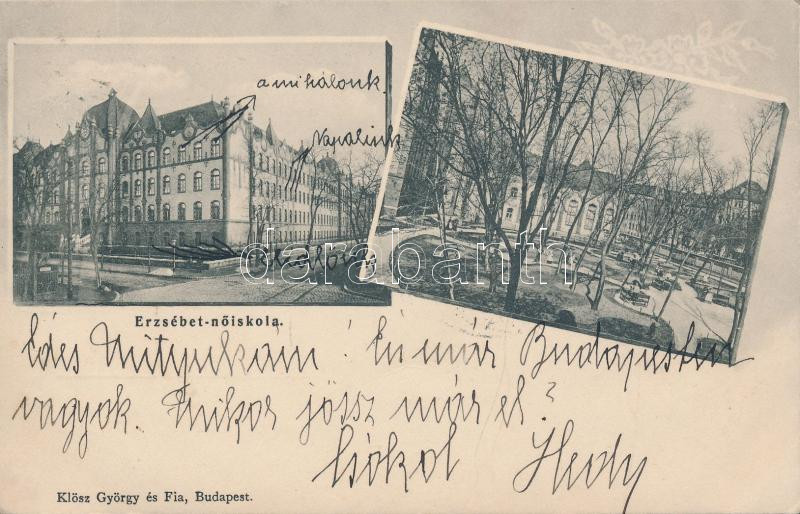 a mi hálónk.
Napalink
Erzsébet-nőiskola.
darabanth
Édes Mityukám! Én már Budapesten
vagyok. Mikor jössz már el?
Csókol Hedy
Klösz György és Fia, Budapest.